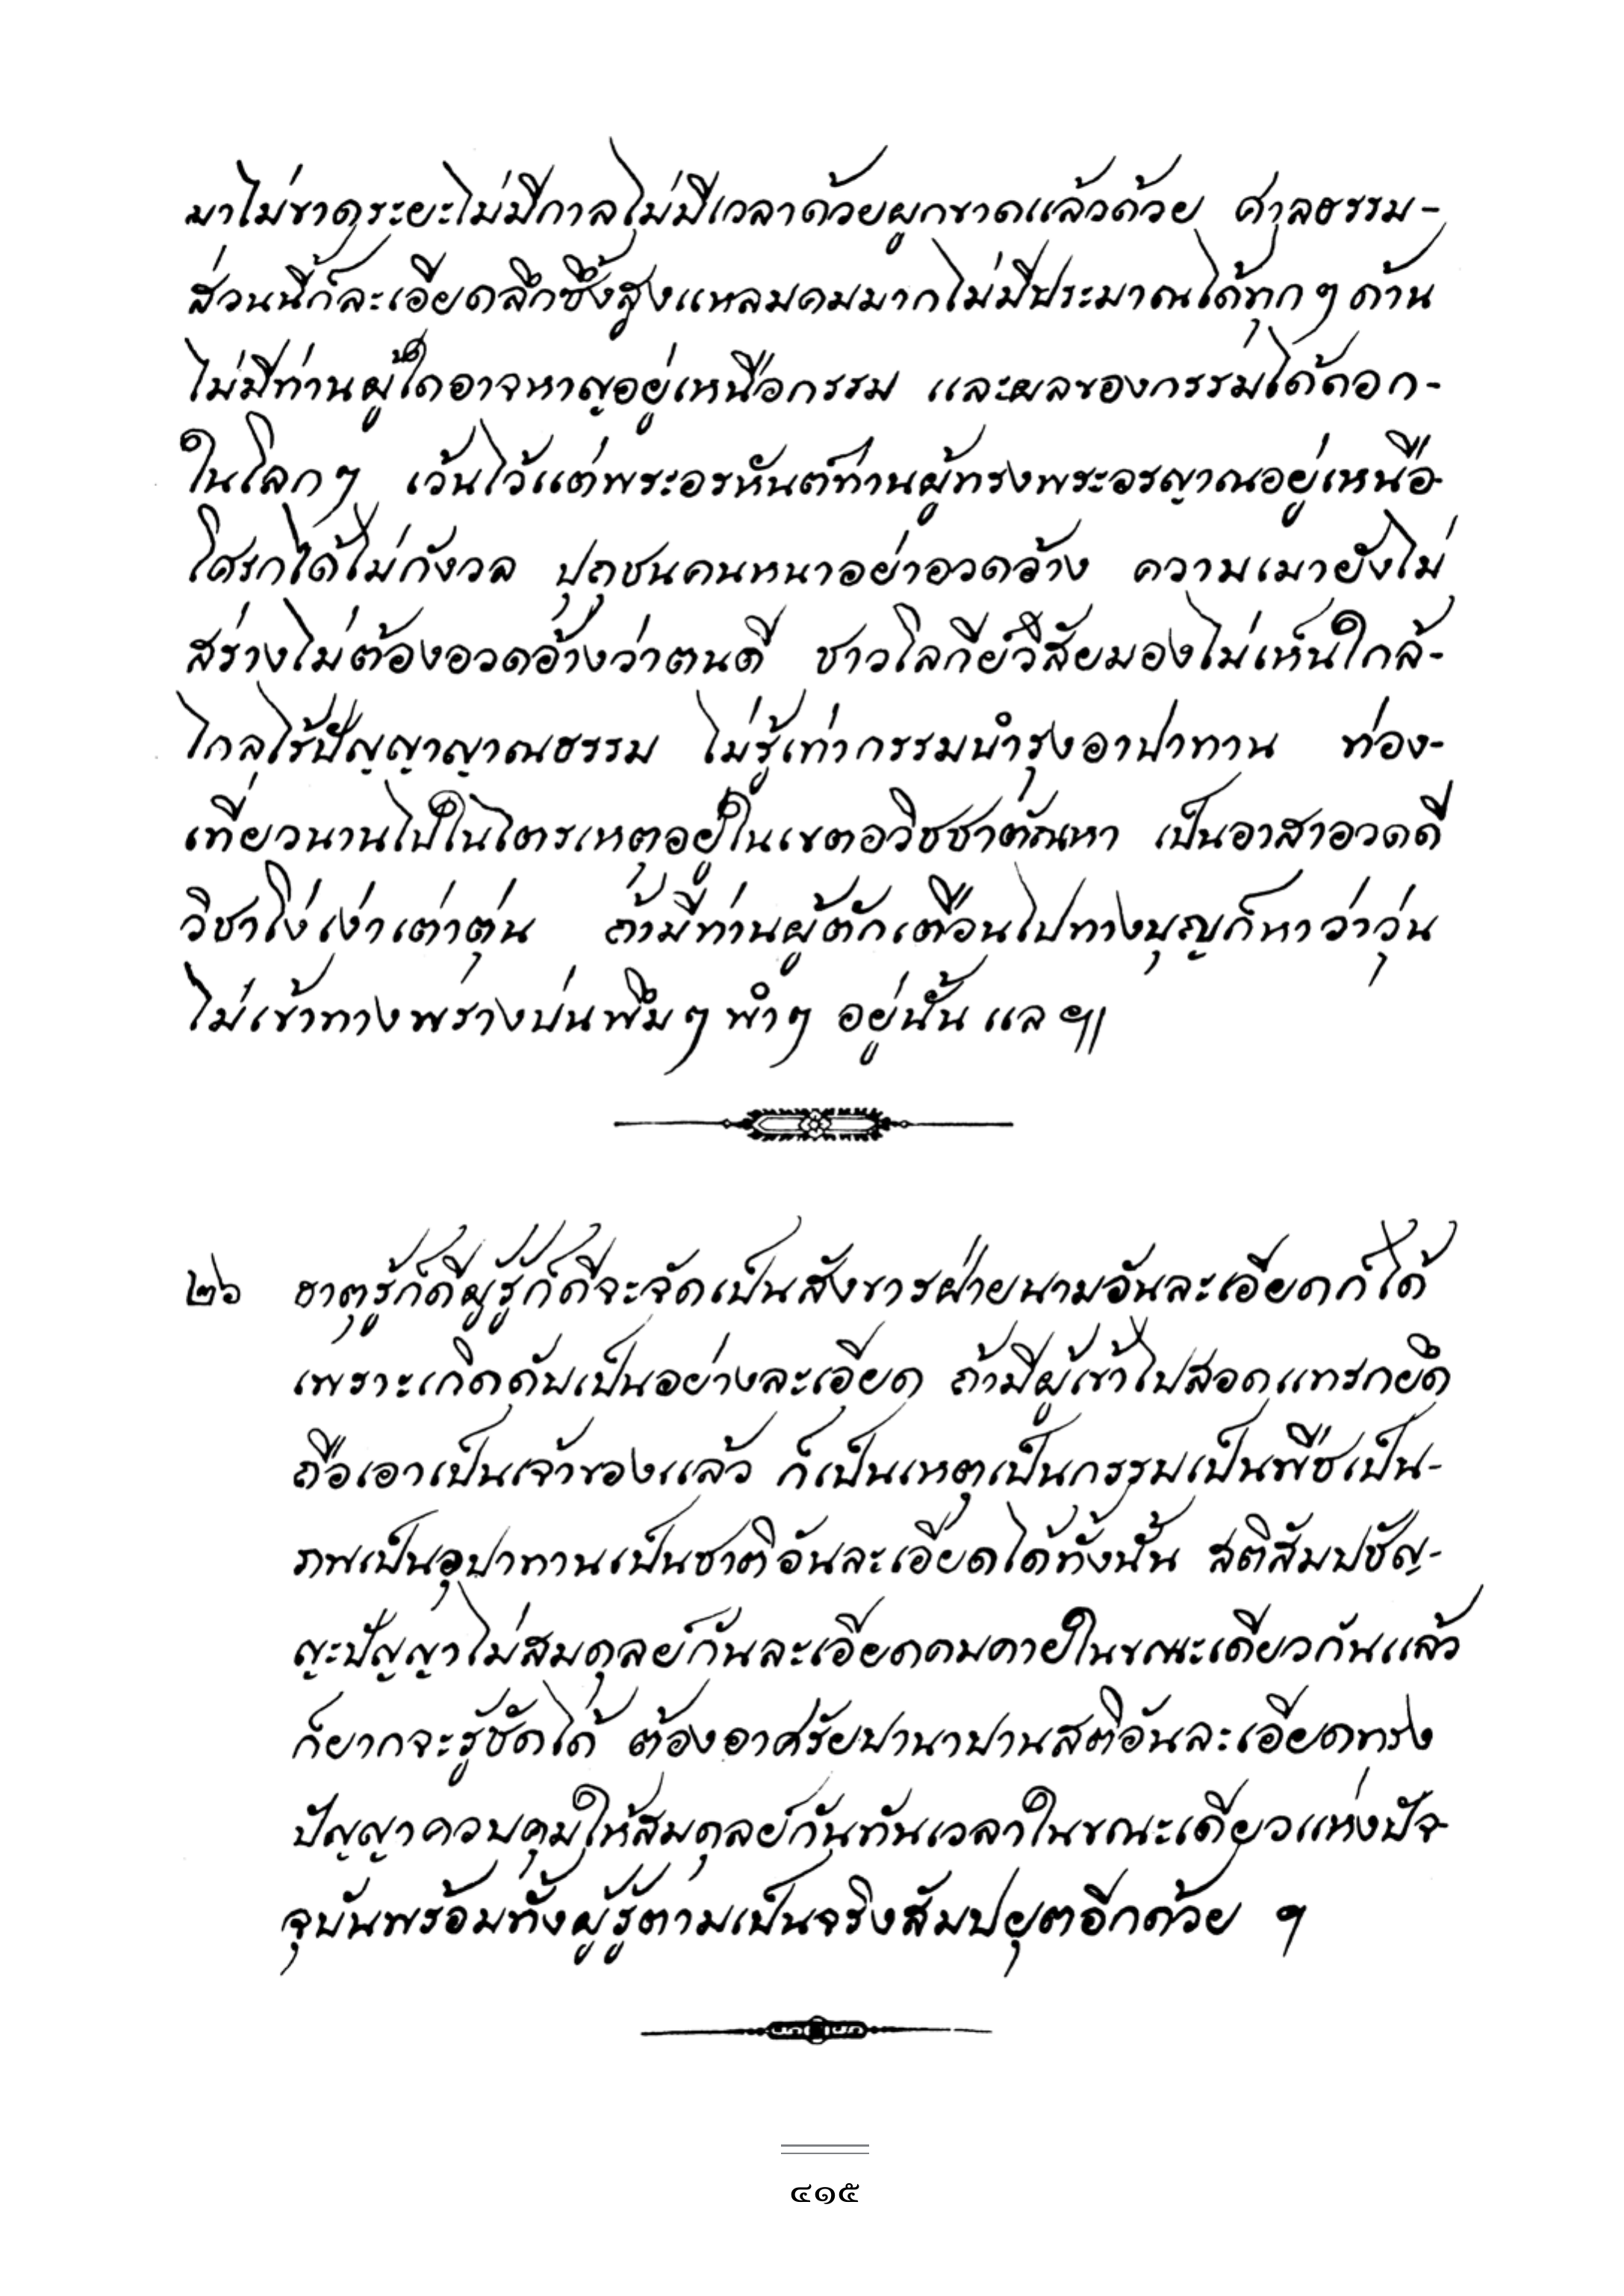 มาไม่ขาดระยะไม่มีกาลไม่มีเวลาด้วยผูกขาดแล้วด้วย ศาลธรรม-
ส่วนนี้ก็ละเอียดลึกซึ้งสูงแหลมคมมากไม่มีประมาณได้ทุกๆ ด้าน
ไม่มีท่านผู้ใดอาจหาญอยู่เหนือกรรม และผลของกรรมได้ดอก-
ในโลกๆ เว้นไว้แต่พระอรหันต์ท่านผู้ทรงพระอรญาณอยู่เหนือ-
โศรกได้ไม่กังวล ปุถุชนคนหนาอย่าอวดอ้าง ความเมายังไม่
สร่างไม่ต้องอวดอ้างว่าตนดี ชาวโลกีย์วิสัยมองไม่เห็นใกล้-
ไกลไร้ปัญญาญาณธรรม ไม่รู้เท่ากรรมบำรุงอาปาทาน ท่อง-
เที่ยวนานไปในไตรเหตุอยู่ในเขตอวิชชาตัณหา เป็นอาสาอวดดี
วิชาโง่เง่าเต่าตุ่น ถ้ามีท่านผู้ตักเตือนไปทางบุญก็หาว่าวุ่น
ไม่เข้าทางพร่างบ่นพึมๆ พำๆ อยู่นั้นแล ๚
๒๖ ธาตุรู้ก็ดีผู้รู้ก็ดีจะจัดเป็นสังขารฝ่ายนามอันละเอียดก็ได้
เพราะเกิดดับเป็นอย่างละเอียด ถ้ามีผู้เข้าไปสอดแทรกยึด
ถือเอาเป็นเจ้าของแล้ว ก็เป็นเหตุเป็นกรรมเป็นพืชเป็น-
ภพเป็นอุปาทานเป็นชาติอันละเอียดได้ทั้งนั้น สติสัมปชัญ-
ญะปัญญาไม่สมดุลย์กันละเอียดคมคายในขณะเดียวกันแล้ว
ก็ยากจะรู้ชัดได้ ต้องอาศรัยปานาปานสติอันละเอียดทรง
ปัญญาควบคุมให้สมดุลย์กันทันเวลาในขณะเดียวแห่งปัจ-
จุบันพร้อมทั้งผู้รู้ตามเป็นจริงสัมปยุตอีกด้วย ฯ
๔๑๕